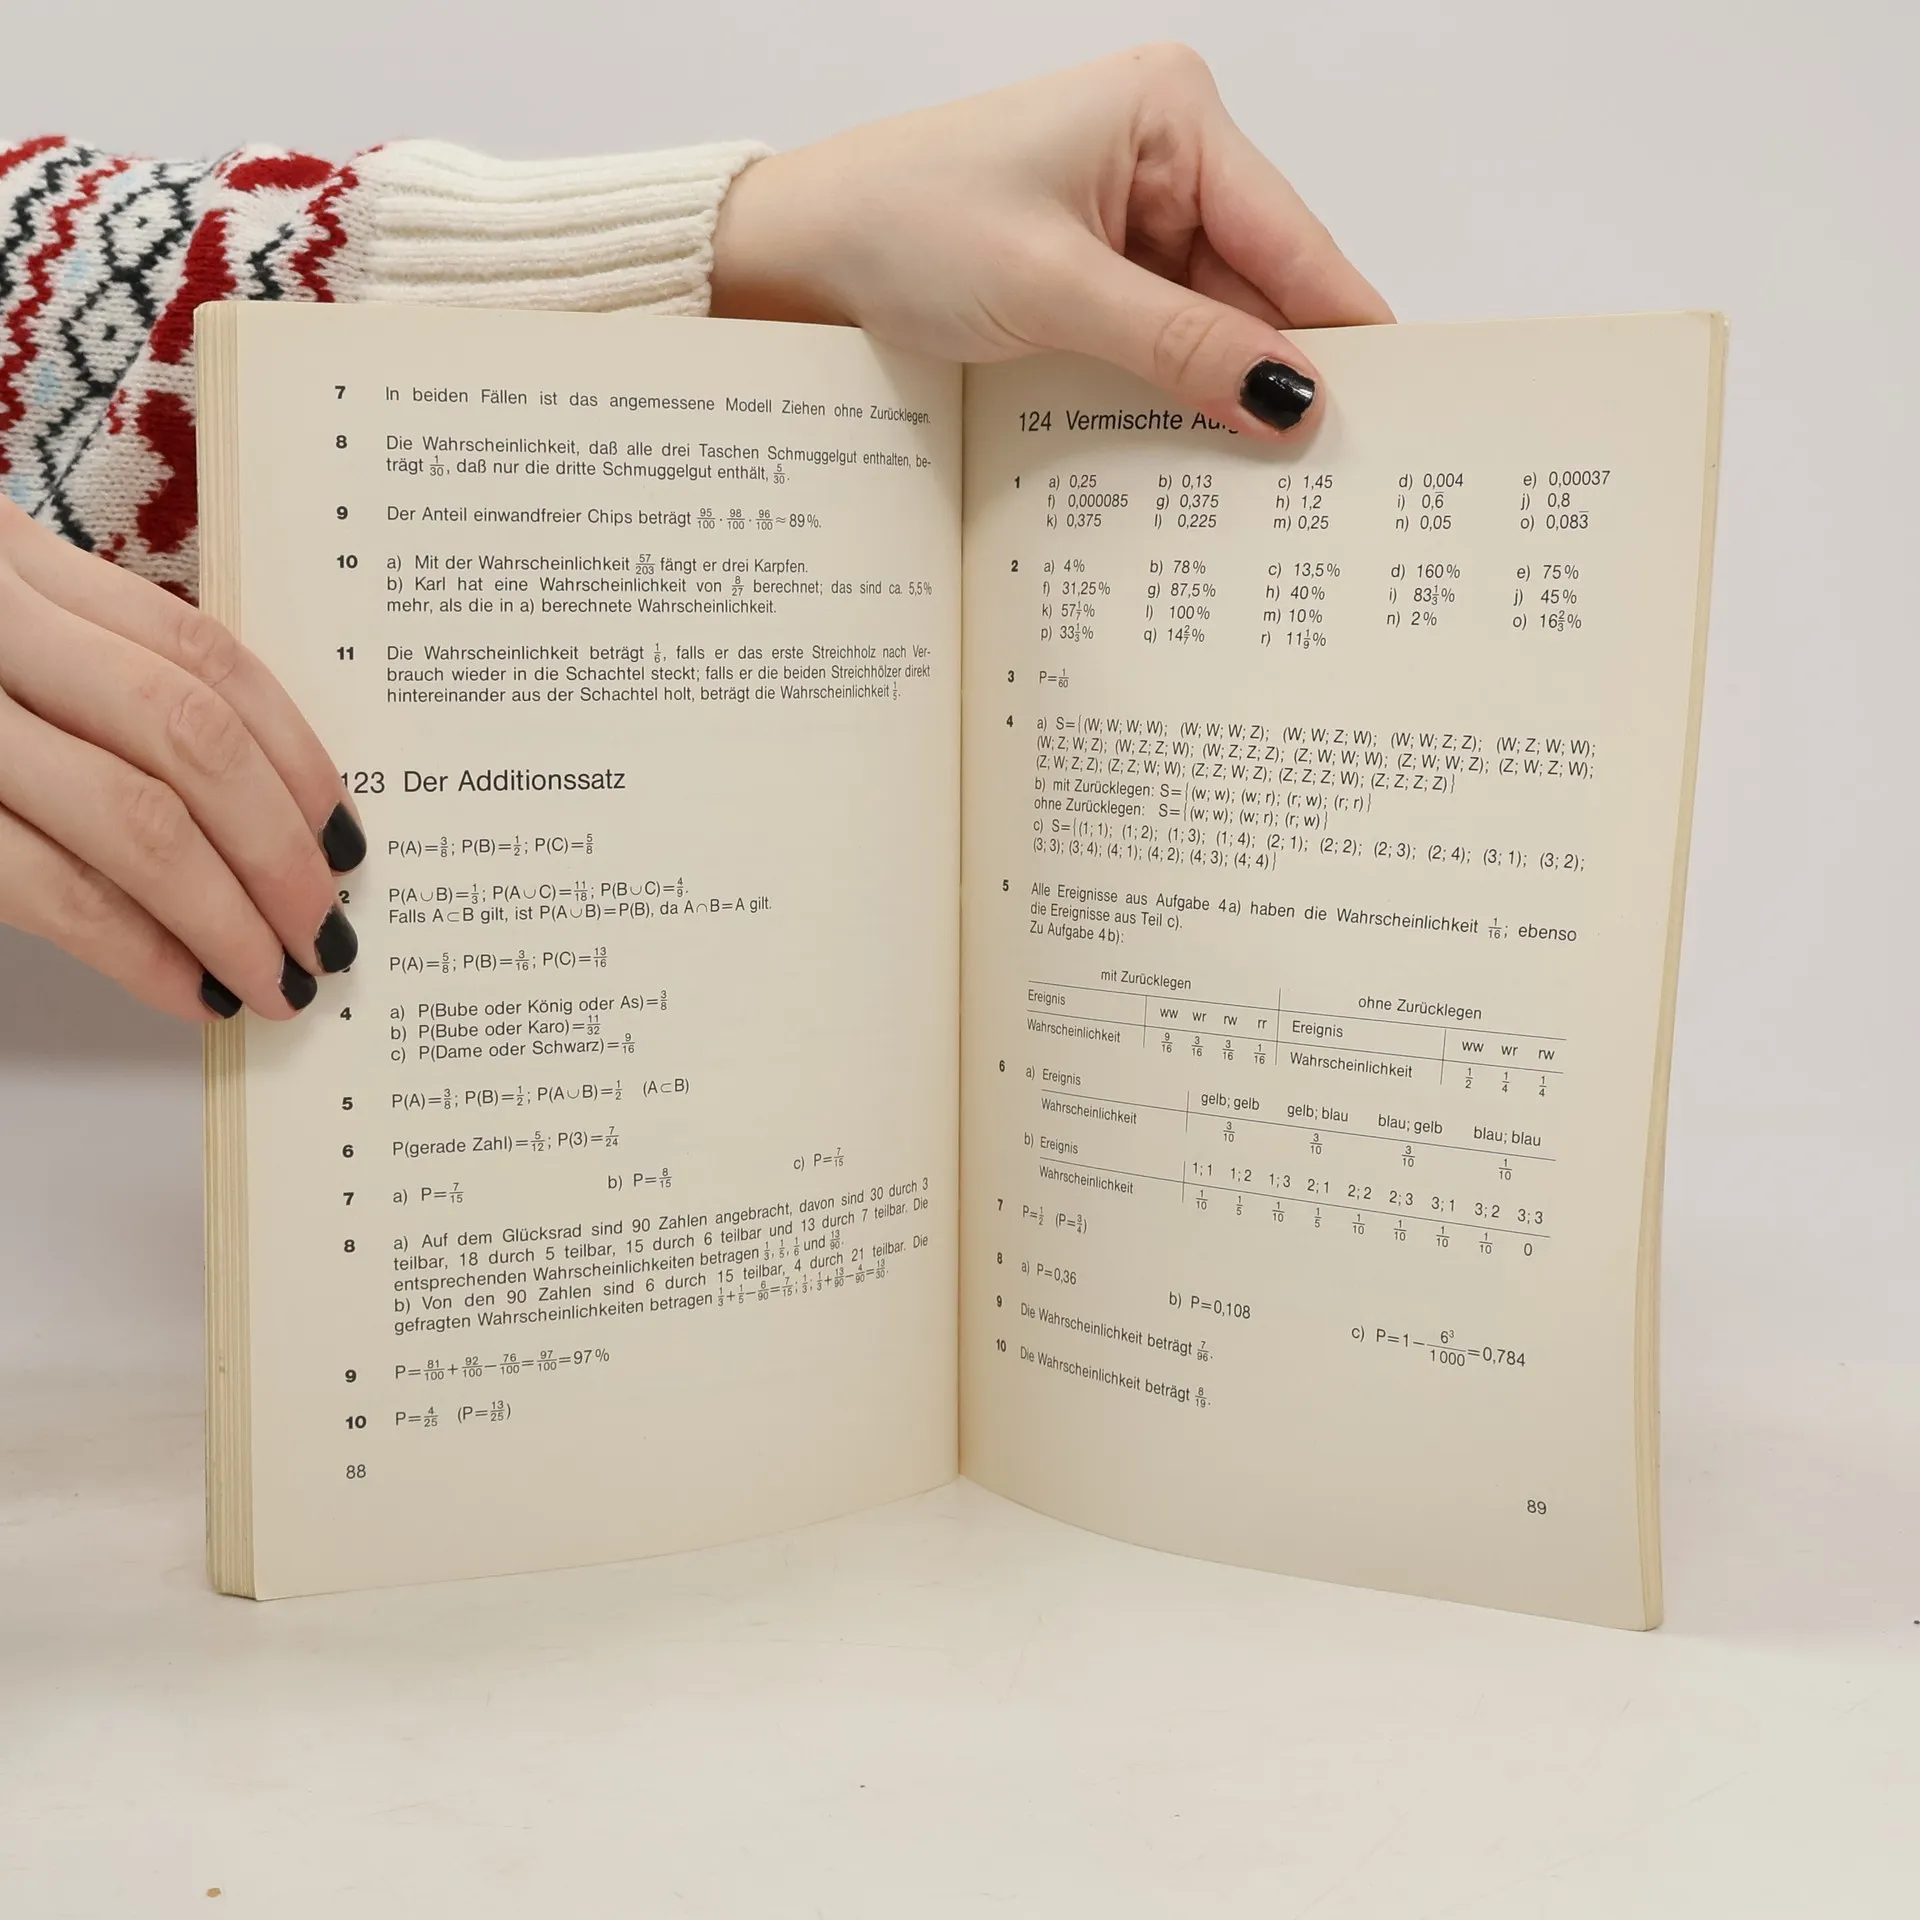 7 In beiden Fällen ist das angemessene Modell Ziehen ohne Zurücklegen.
8 Die Wahrscheinlichkeit, daß alle drei Taschen Schmuggelgut enthalten, be-
trägt 1/30, daß nur die dritte Schmuggelgut enthält, 5/30.
9 Der Anteil einwandfreier Chips beträgt 95/100 · 98/100 · 96/100 ≈ 89%.
10 a) Mit der Wahrscheinlichkeit 57/203 fängt er drei Karpfen.
b) Karl hat eine Wahrscheinlichkeit von 8/27 berechnet; das sind ca. 5,5%
mehr, als die in a) berechnete Wahrscheinlichkeit.
11 Die Wahrscheinlichkeit beträgt 1/6, falls er das erste Streichholz nach Ver-
brauch wieder in die Schachtel steckt; falls er die beiden Streichhölzer direkt
hintereinander aus der Schachtel holt, beträgt die Wahrscheinlichkeit 1/5.
123 Der Additionssatz
P(A)=3/8; P(B)=1/2; P(C)=5/8
2 P(A∪B)=1/3; P(A∪C)=11/18; P(B∪C)=4/9.
Falls A⊂B gilt, ist P(A∪B)=P(B), da A∩B=A gilt.
P(A)=5/8; P(B)=3/16; P(C)=13/16
4 a) P(Bube oder König oder As)=3/8
b) P(Bube oder Karo)=11/32
c) P(Dame oder Schwarz)=9/16
5 P(A)=3/8; P(B)=1/2; P(A∪B)=1/2 (A⊂B)
6 P(gerade Zahl)=5/12; P(3)=7/24
7 a) P=7/15 b) P=8/15 c) P=7/15
8 a) Auf dem Glücksrad sind 90 Zahlen angebracht, davon sind 30 durch 3
teilbar, 18 durch 5 teilbar, 15 durch 6 teilbar und 13 durch 7 teilbar. Die
entsprechenden Wahrscheinlichkeiten betragen 1/3, 1/5, 1/6 und 13/90.
b) Von den 90 Zahlen sind 6 durch 15 teilbar, 4 durch 21 teilbar. Die
gefragten Wahrscheinlichkeiten betragen 1/3+1/5−6/90=7/15; 1/3; 1/3+13/90−4/90=13/30.
9 P=81/100+92/100−76/100=97/100=97%
10 P=4/25 (P=13/25)
88
124 Vermischte
1 a) 0,25 b) 0,13 c) 1,45 d) 0,004 e) 0,00037
f) 0,000085 g) 0,375 h) 1,2 i) 0,6̅ j) 0,8
k) 0,375 l) 0,225 m) 0,25 n) 0,05 o) 0,083̅
2 a) 4% b) 78% c) 13,5% d) 160% e) 75%
f) 31,25% g) 87,5% h) 40% i) 83 1/3% j) 45%
k) 57 1/7% l) 100% m) 10% n) 2% o) 16 2/3%
p) 33 1/3% q) 14 2/7% r) 11 1/9%
3 P=1/60
4 a) S={(W; W; W; W); (W; W; W; Z); (W; W; Z; W); (W; W; Z; Z); (W; Z; W; W);
(W; Z; W; Z); (W; Z; Z; W); (W; Z; Z; Z); (Z; W; W; W); (Z; W; W; Z); (Z; W; Z; W);
(Z; W; Z; Z); (Z; Z; W; W); (Z; Z; W; Z); (Z; Z; Z; W); (Z; Z; Z; Z)}
b) mit Zurücklegen: S={(w; w); (w; r); (r; w); (r; r)}
ohne Zurücklegen: S={(w; w); (w; r); (r; w)}
c) S={(1; 1); (1; 2); (1; 3); (1; 4); (2; 1); (2; 2); (2; 3); (2; 4); (3; 1); (3; 2);
(3; 3); (3; 4); (4; 1); (4; 2); (4; 3); (4; 4)}
5 Alle Ereignisse aus Aufgabe 4a) haben die Wahrscheinlichkeit 1/16; ebenso
die Ereignisse aus Teil c).
Zu Aufgabe 4b):
mit Zurücklegen ohne Zurücklegen
Ereignis ww wr rw rr Ereignis ww wr rw
Wahrscheinlichkeit 9/16 3/16 3/16 1/16 Wahrscheinlichkeit 1/2 1/4 1/4
6 a) Ereignis gelb; gelb gelb; blau blau; gelb blau; blau
Wahrscheinlichkeit 3/10 3/10 3/10 1/10
b) Ereignis 1; 1 1; 2 1; 3 2; 1 2; 2 2; 3 3; 1 3; 2 3; 3
Wahrscheinlichkeit 1/10 1/5 1/10 1/5 1/10 1/10 1/10 1/10 0
7 P=1/2 (P=3/4)
8 a) P=0,36 b) P=0,108 c) P=1−6³/1000=0,784
9 Die Wahrscheinlichkeit beträgt 7/96.
10 Die Wahrscheinlichkeit beträgt 8/19.
89